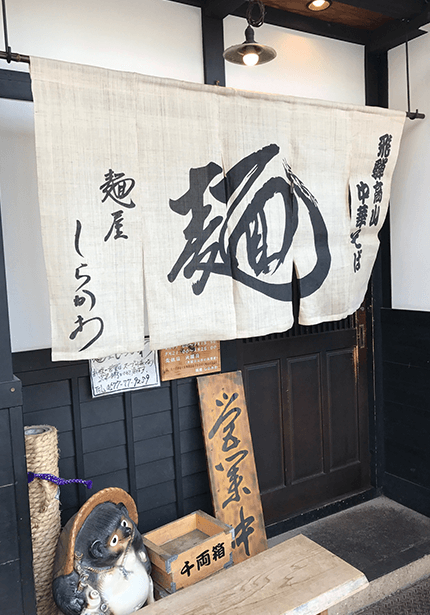 飛騨高山
中華そば
麺
麺屋
しらかわ
Tel,0577-77-9289
営業中
千両箱